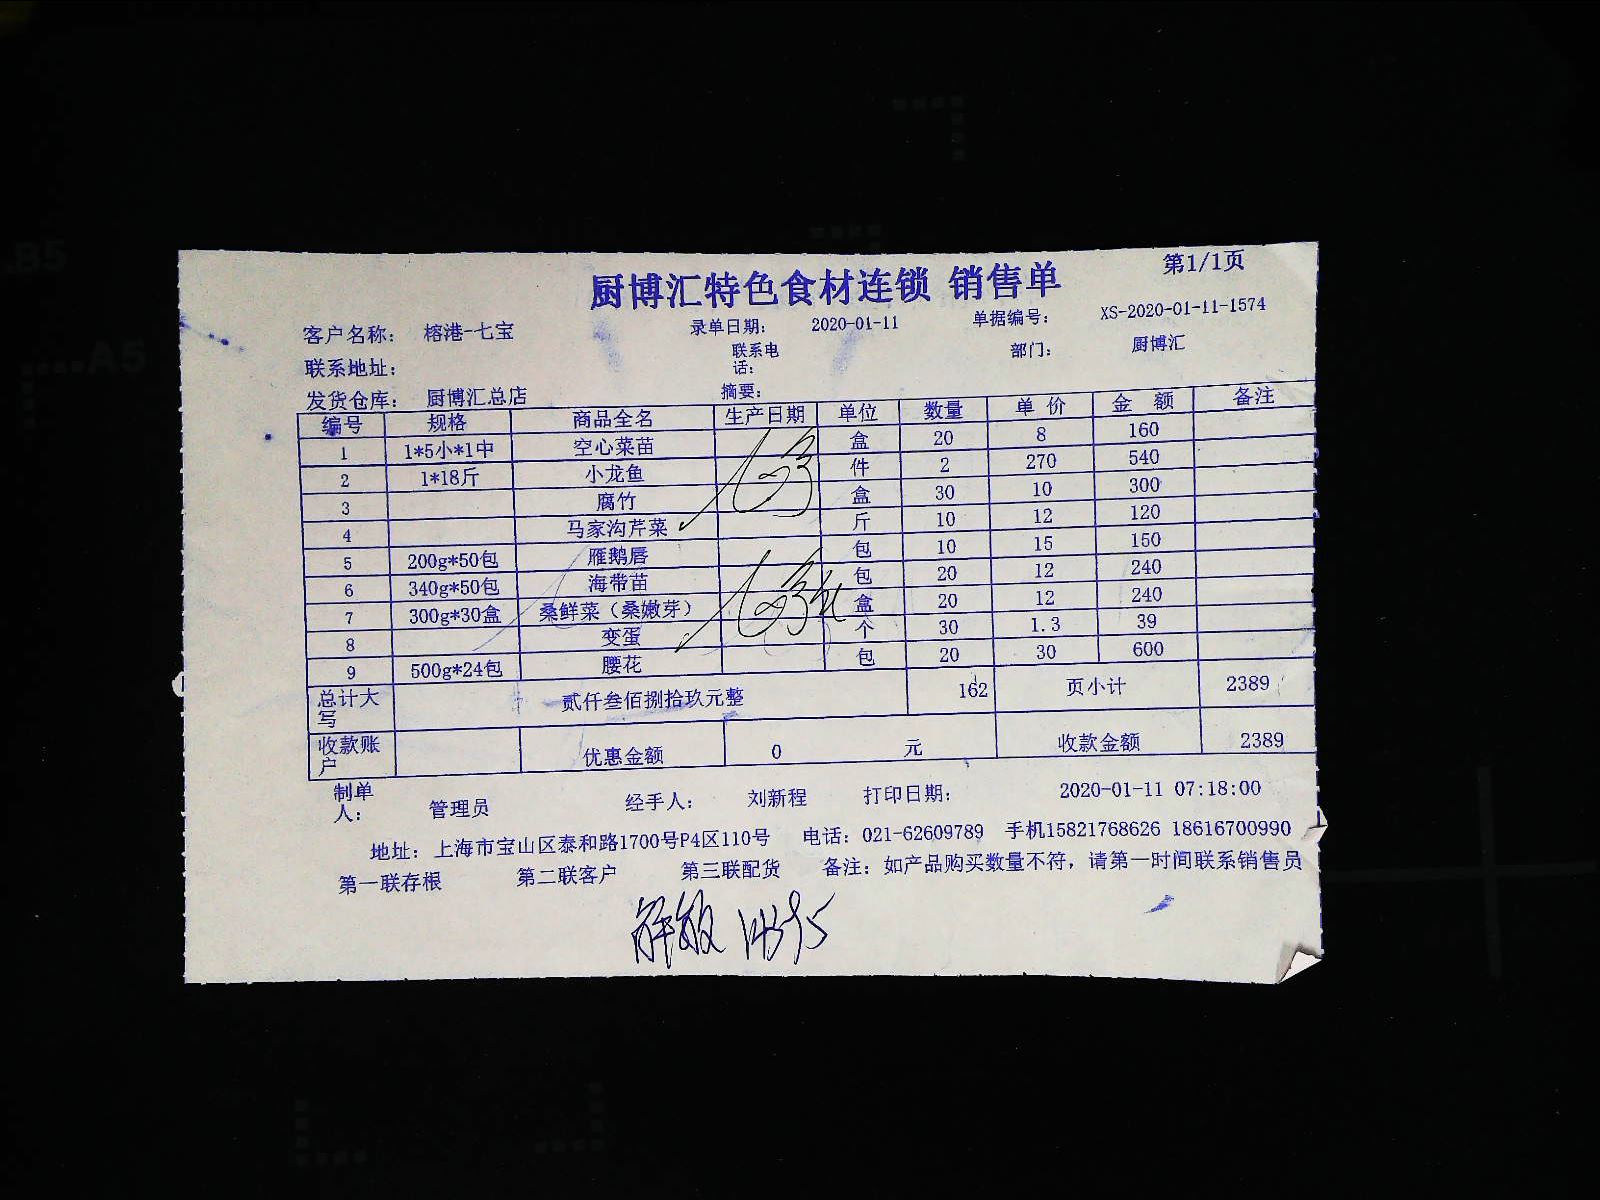 第1/1页
厨博汇特色食材连锁 销售单
客户名称： 榕港-七宝 录单日期： 2020-01-11 单据编号： XS-2020-01-11-1574
联系地址： 联系电话： 部门： 厨博汇
发货仓库： 厨博汇总店 摘要：
编号 规格 商品全名 生产日期 单位 数量 单价 金额 备注
1 1*5小*1中 空心菜苗 盒 20 8 160
2 1*18斤 小龙鱼 件 2 270 540
3 腐竹 盒 30 10 300
4 马家沟芹菜 斤 10 12 120
5 200g*50包 雁鹅唇 包 10 15 150
6 340g*50包 海带苗 包 20 12 240
7 300g*30盒 桑鲜菜（桑嫩芽） 盒 20 12 240
8 变蛋 个 30 1.3 39
9 500g*24包 腰花 包 20 30 600
总计大写 贰仟叁佰捌拾玖元整 162 页小计 2389
收款账户 优惠金额 0 元 收款金额 2389
制单人： 管理员 经手人： 刘新程 打印日期： 2020-01-11 07:18:00
地址：上海市宝山区泰和路1700号P4区110号 电话：021-62609789 手机15821768626 18616700990
第一联存根 第二联客户 第三联配货 备注：如产品购买数量不符，请第一时间联系销售员